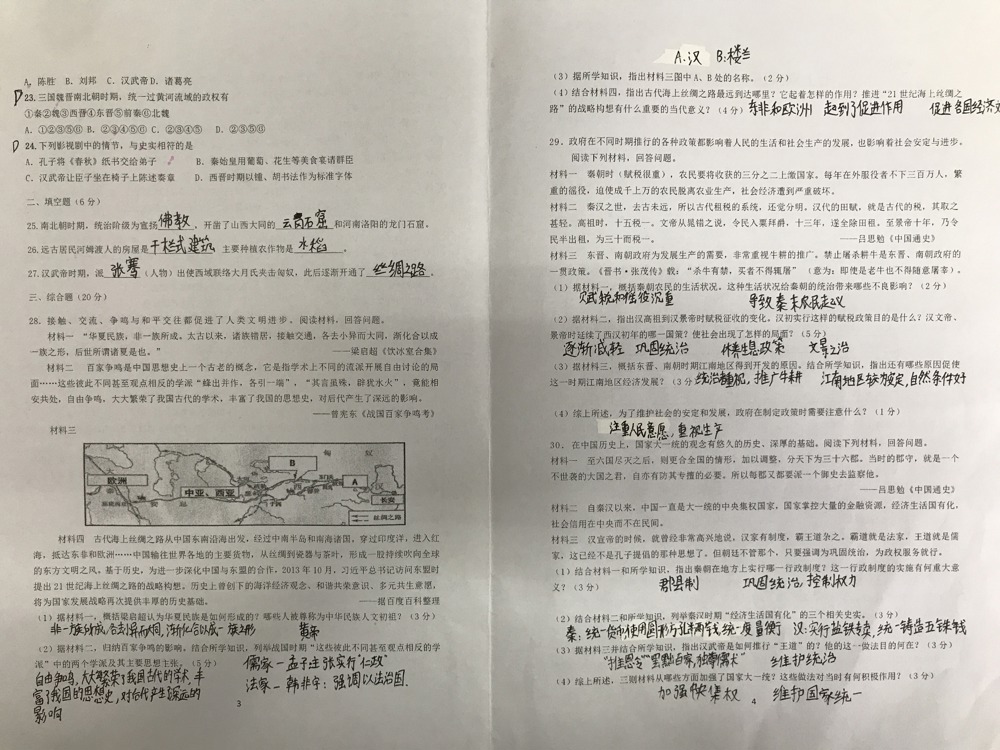 A. 陈胜 B. 刘邦 C. 汉武帝 D. 诸葛亮
D 23.三国魏晋南北朝时期，统一过黄河流域的政权有
①秦②魏③西晋④东晋⑤前秦⑥北魏
A. ①②③⑤⑥ B. ②③④⑤⑥ C. ②③④⑤ D. ②③⑤⑥
D 24.下列影视剧中的情节，与史实相符的是
A. 孔子将《春秋》纸书交给弟子 B. 秦始皇用葡萄、花生等美食宴请群臣
C. 汉武帝让臣子坐在椅子上陈述奏章 D. 西晋时期以锺、胡书法作为标准字体
二、填空题（6分）
25.南北朝时期，统治阶级为宣扬 佛教 ，开凿了山西大同的 云岗石窟 和河南洛阳的龙门石窟。
26.远古居民河姆渡人的房屋是 干栏式建筑 ，主要种植农作物是 水稻 。
27.汉武帝时期，派 张骞 （人物）出使西域联络大月氏夹击匈奴，此后逐渐开通了 丝绸之路 。
三、综合题（20分）
28. 接触、交流、争鸣与和平交往都促进了人类文明进步。阅读材料，回答问题。
材料一 “华夏民族，非一族所成。太古以来，诸族错居，接触交通，各去小异而大同，渐化合以成
一族之形，后世所谓诸夏是也。” ——梁启超《饮冰室合集》
材料二 百家争鸣是中国思想史上一个古老的概念，它是指学术上不同的流派开展自由讨论的局
面……这些彼此不同甚至观点相反的学派“蜂出并作，各引一端”，“其言虽殊，辟犹水火”，竟能相
安共处，自由争鸣，大大繁荣了我国古代的学术，丰富了我国的思想史，对后代产生了深远的影响。
——曾宪东《战国百家争鸣考》
材料三
匈 奴
B
欧洲
A
民
中亚、西亚
长安
丝绸之路
材料四 古代海上丝绸之路从中国东南沿海出发，经过中南半岛和南海诸国，穿过印度洋，进入红
海，抵达东非和欧洲……中国输往世界各地的主要货物，从丝绸到瓷器与茶叶，形成一股持续吹向全球
的东方文明之风。基于历史，为进一步深化中国与东盟的合作，2013年10月，习近平总书记访问东盟时
提出21世纪海上丝绸之路的战略构想。历史上曾创下的海洋经济观念、和谐共荣意识、多元共生意愿，
将为国家发展战略再次提供丰厚的历史基础。 ——据百度百科整理
（1）据材料一，概括梁启超认为华夏民族是如何形成的？哪些人被尊称为中华民族人文初祖？（3分）
非一族所成，合去小异而大同，渐化合以成一族之形 黄帝
（2）据材料二，归纳百家争鸣的影响。结合所学知识，列举战国时期“这些彼此不同甚至观点相反的学
派”中的两个学派及其主要思想主张。（5分） 儒家—孟子主张实行“仁政”
自由争鸣，大大繁荣了我国古代的学术，丰
富了我国的思想史，对后代产生了深远的 法家—韩非子：强调以法治国.
影响
3
A:汉 B:楼兰
（3）据所学知识，指出材料三图中A、B处的名称。（2分）
（4）结合材料四，指出古代海上丝绸之路最远到达哪里？它起着怎样的作用？推进“21世纪海上丝绸之
路”的战略构想有什么重要的当代意义？（4分） 东非和欧洲 起到了促进作用 促进各国经济
29. 政府在不同时期推行的各种政策都影响着人民的生活和社会生产的发展，也影响着社会安定与进步。
阅读下列材料，回答问题。
材料一 秦朝时（赋税很重），农民要将收获的三分之二上缴国家。每年在外服役者不下三百万人，繁
重的徭役，迫使成千上万的农民脱离农业生产，社会经济遭到严重破坏。
材料二 秦汉之世，去古未远，所以古代租税的系统，还觉分明。汉代的田赋，就是古代的税，其取之
甚轻。高祖时，十五税一。文帝从晁错之说，令民入粟拜爵，十三年，遂全除田租。至景帝十年，乃令
民半出租，为三十而税一。 ——吕思勉《中国通史》
材料三 东晋、南朝政府为发展生产的需要，非常重视牛耕的推广。禁止屠杀耕牛是东晋、南朝政府的
一贯政策。《晋书·张茂传》载：“杀牛有禁，买者不得辄屠” （意为：即使是老牛也不得随意屠宰）。
（1）据材料一，概括秦朝农民的生活状况。这种生活状况给秦朝的统治带来哪些不良影响？（2分）
赋税和徭役沉重 导致秦末农民起义
（2）据材料二，指出汉高祖到汉景帝时赋税征收的变化。汉初实行这样的赋税政策目的是什么？汉文帝、
景帝时延续了西汉初年的哪一国策？使社会出现了怎样的局面？（5分）
逐渐减轻 巩固统治 休养生息政策 文景之治
（3）据材料三，概括东晋、南朝时期江南地区得到开发的原因。结合所学知识，指出还有哪些原因促使
这一时期江南地区经济发展？（3分） 统治者重视，推广牛耕 江南地区较为安定，自然条件好
（4）综上所述，为了维护社会的安定和发展，政府在制定政策时需要注意什么？（1分）
注重人民意愿，重视生产
30. 在中国历史上，国家大一统的观念有悠久的历史、深厚的基础。阅读下列材料，回答问题。
材料一 至六国尽灭之后，则更合全国的情形，加以调整，分天下为三十六郡。当时的郡守，就是一个
不世袭的大国之君，自亦有防其专擅的必要。所以每郡又都要派一个御史去监察他。
——吕思勉《中国通史》
材料二 自秦汉以来，中国一直是大一统的中央集权国家，国家掌控大量的金融资源，经济生活国有化，
社会信用在中央而不在民间。
材料三 汉宣帝的时候，就曾经非常高兴地说，汉家有制度，霸王道杂之。霸道就是法家，王道就是儒
家，这已经不是孔子提倡的那种思想了，但朝廷不管那个，只要强调为巩固统治，为政权服务就行。
（1）结合材料一和所学知识，指出秦朝在地方上实行哪一行政制度？这一行政制度的实施有何重大意
义？（3分） 郡县制 巩固统治，控制权力
（2）结合材料二和所学知识，列举秦汉时期“经济生活国有化”的三个相关史实。（3分）
秦：统一货币使用圆形方孔半两钱，统一度量衡 汉：实行盐铁专卖，统一铸造五铢钱
（3）据材料三并结合所学知识，指出汉武帝是如何推行“王道”的？他的这一做法目的何在？（3分）
“推恩令”“罢黜百家，独尊儒术” 维护统治
（4）综上所述，三则材料从哪些方面加强了国家大一统？这些做法对当时有何积极作用？（3分）
加强中央集权 维护国家统一
4